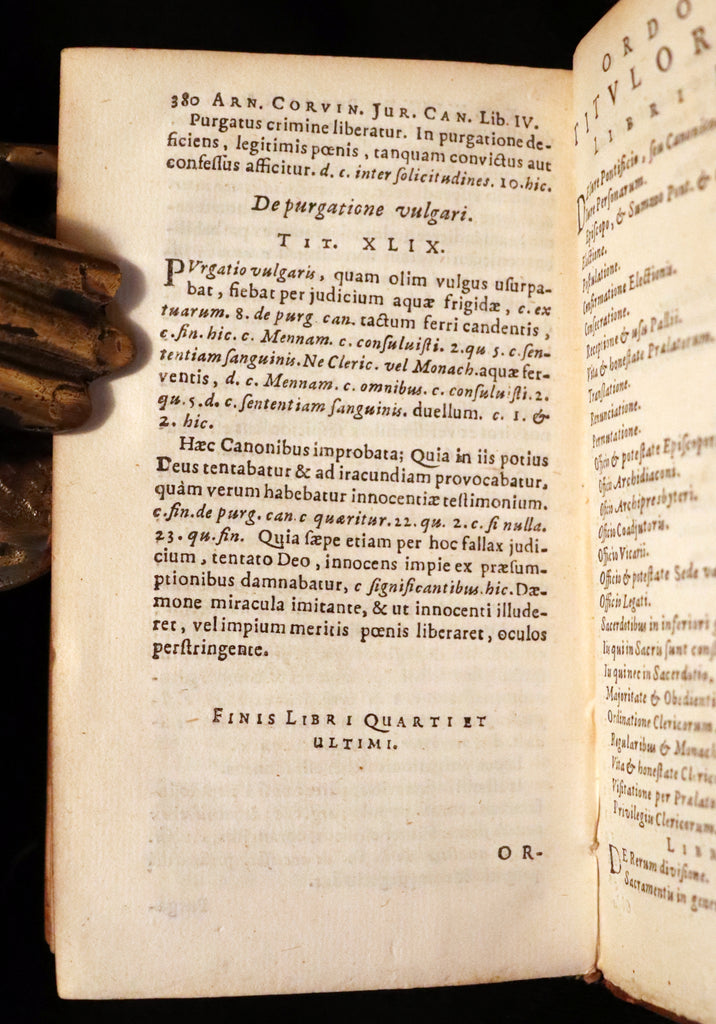 380 ARN. CORVIN. JUR. CAN. Lib. IV.
Purgatus crimine liberatur. In purgatione de-
ficiens, legitimis pœnis, tanquam convictus aut
confeſſus afficitur. d. c. inter ſolicitudines. 10. hic.
De purgatione vulgari.
TIT. XLIX.
PVrgatio vulgaris, quam olim vulgus uſurpa-
bat, fiebat per judicium aquæ frigidæ, c. ex
tuarum. 8. de purg. can. tactum ferri candentis,
c. fin. hic. c. Mennam. c. conſuluiſti. 2. qu 5. c. ſen-
tentiam ſanguinis. Ne Cleric. vel Monach. aquæ fer-
ventis, d. c. Mennam. c. omnibus. c. conſuluiſti. 2.
qu. 5. d. c. ſententiam ſanguinis. duellum. c. 1. &
2. hic.
Hæc Canonibus improbata; Quia in iis potius
Deus tentabatur & ad iracundiam provocabatur,
quàm verum habebatur innocentiæ teſtimonium.
c. fin. de purg. can. c quæritur. 22. qu. 2. c. ſi nulla.
23. qu. fin. Quia ſæpe etiam per hoc fallax judi-
cium, tentato Deo, innocens impie ex præſum-
ptionibus damnabatur, c ſignificantibus. hic. Dæ-
mone miracula imitante, & ut innocenti illude-
ret, vel impium meritis pœnis liberaret, oculos
perſtringente.
FINIS LIBRI QUARTI ET
ULTIMI.
OR-
ORDO
TITVLOR
LIBRI
De Jure Pontificio, ſeu Canonico
Jure Perſonarum.
Epiſcopo, & Summo Pont. &
Electione.
Poſtulatione.
Confirmatione Electionis.
Conſecratione.
Receptione & uſu Pallii.
Vita & honeſtate Prælatorum.
Tranſlatione.
Renunciatione.
Permutatione.
Officio & poteſtate Epiſcopor
Officio Archidiaconi.
Officio Archipresbyteri.
Officio Coadjutoris.
Officio Vicarii.
Officio & poteſtate Sede va
Officio Legati.
Sacerdotibus in inferiori
Iis qui in Sacris ſunt conſ
Iis qui nec in Sacerdotio,
Majoritate & Obedienti
Ordinatione Clericorum
Regularibus & Monach
Vita & honeſtate Cleric
Viſitatione per Prælat
Privilegiis Clericorum
LIB
DE Rerum diviſione.
Sacramentis in gener